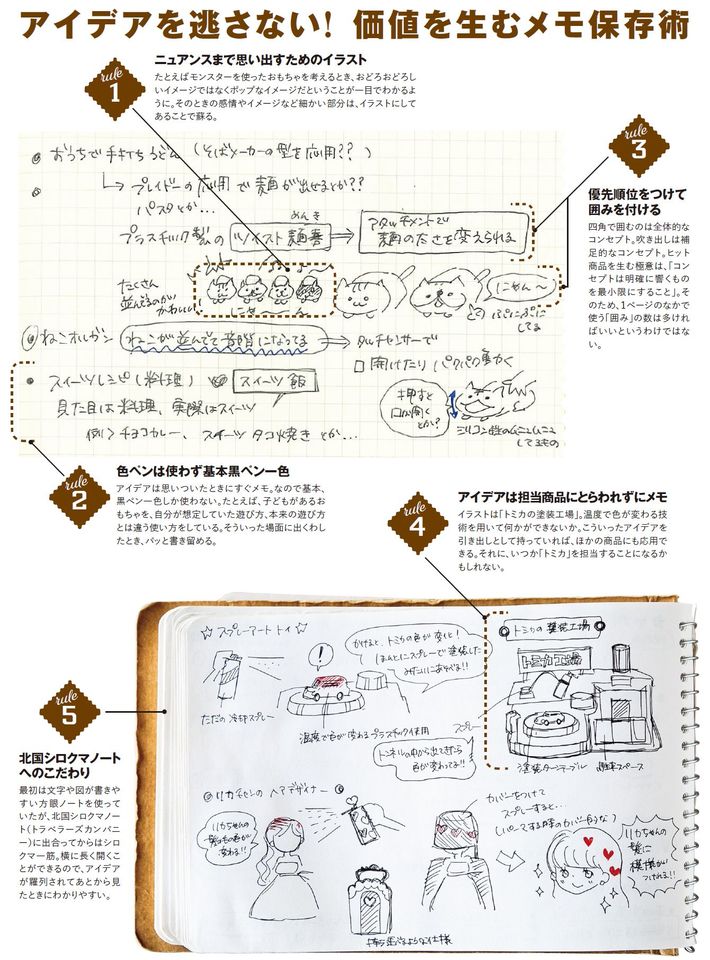 アイデアを逃さない! 価値を生むメモ保存術
rule 1
ニュアンスまで思い出すためのイラスト
たとえばモンスターを使ったおもちゃを考えるとき、おどろおどろし
いイメージではなくポップなイメージだということが一目でわかるよ
うに。そのときの感情やイメージなど細かい部分は、イラストにして
あることで蘇る。
おうちで手打ちうどん(そばメーカーの型を応用??)
プレイドーの応用で麺が出せるとか??
パスタとか…
プラスチック製の ツイスト麺棒 ⇒ アタッチメントで
めんき
麺の太さを変えられる
たくさん
並んでるのが
かわいい!
にゃ〜ん
にゃん〜
ぷにぷに
してる
ねこオルガン ねこが並んでて音階になってる ⇒ タッチセンサーで
口開けたりパクパク動く
スイーツレシピ(料理) スイーツ飯
見た目は料理、実際はスイーツ
例>チョコカレー、スイーツタコ焼きとか…
押すと
口が開く
とか?
シリコン性のムニュムニュ
してるもの
rule 3
優先順位をつけて
囲みを付ける
四角で囲むのは全体的な
コンセプト。吹き出しは補
足的なコンセプト。ヒット
商品を生む極意は、「コン
セプトは明確に響くもの
を最小限にすること」。そ
のため、1ページのなかで
使う「囲み」の数は多けれ
ばいいというわけではな
い。
rule 2
色ペンは使わず基本黒ペン一色
アイデアは思いついたときにすぐメモ。なので基本、
黒ペン一色しか使わない。たとえば、子どもがあるお
もちゃを、自分が想定していた遊び方、本来の遊び方
とは違う使い方をしている。そういった場面に出くわし
たとき、パッと書き留める。
rule 4
アイデアは担当商品にとらわれずにメモ
イラストは「トミカの塗装工場」。温度で色が変わる技
術を用いて何かができないか。こういったアイデアを
引き出しとして持っていれば、ほかの商品にも応用で
きる。それに、いつか「トミカ」を担当することになるか
もしれない。
rule 5
北国シロクマノート
へのこだわり
最初は文字や図が書きや
すい方眼ノートを使って
いたが、北国シロクマノー
ト(トラベラーズカンパニ
ー)に出合ってからはシロ
クマ一筋。横に長く開くこ
とができるので、アイデア
が羅列されてあとから見
たときにわかりやすい。
☆スプレーアートトイ☆
かけると、トミカの色が変化!
ほんとにスプレーで塗装した
みたいにあそべる!!
!
ただの冷却スプレー
温度で色が変わるプラスチック使用
トンネルの中から出てきたら
色が変わってる!!
トミカの塗装工場
トミカ工場
スプレー
塗装ターンテーブル
駐車スペース
リカちゃんのヘアデザイナー
リカちゃんの
髪の毛の色が
変わる!
カバーをつけて
スプレーすると…
(パーマする時のカバー的な)
リカちゃんの
髪に
模様が
つけれる!!
持ち運べるような仕様